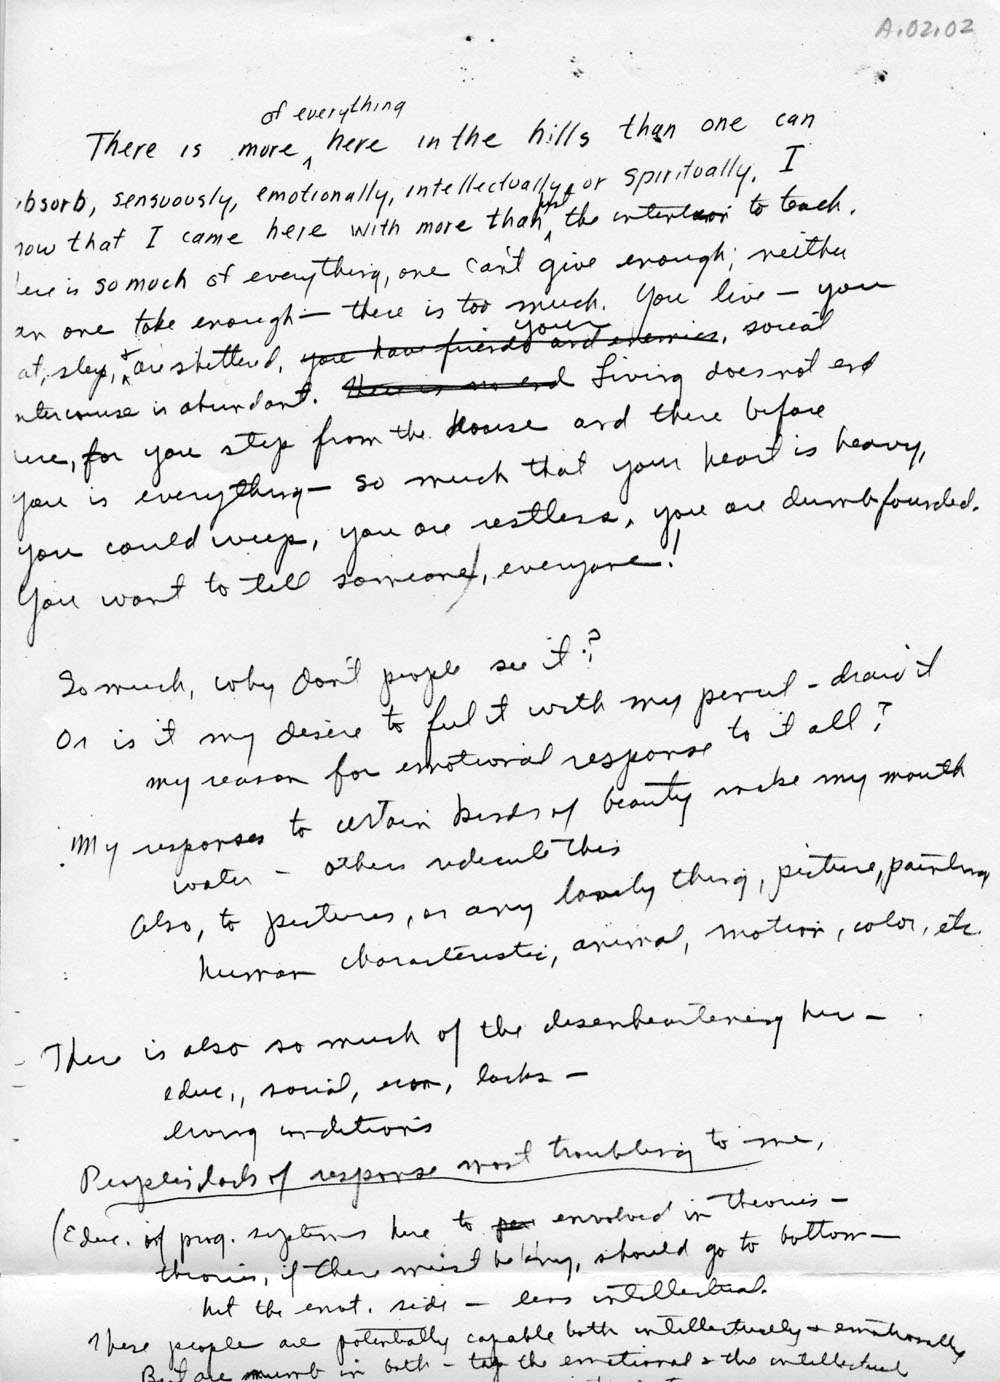 A.02.02
of everything
There is more ^ here in the hills than one can
bsorb, sensuously, emotionally, intellectually, or spiritually. I
now that I came here with more than ^ just the intention to teach.
ere is so much of everything, one can't give enough; neither
an one take enough — there is too much. You live — you
at, sleep, + are sheltered, you have friends and enemies, your social
ntercourse is abundant. There is no end Living does not end
ere, for you step from the house and there before
you is everything — so much that your heart is heavy,
you could weep, you are restless, you are dumbfounded.
You want to tell someone, everyone!
So much, why don't people see it?
Or is it my desire to feel it with my pencil - draw it
my reason for emotional response to it all?
My responses to certain kinds of beauty make my mouth
water - others ridicule this
Also, to pictures, or any lovely thing, picture, painting
human characteristic, animal, motion, color, etc.
There is also so much of the disenheartening here —
educ., social, econ, lacks —
living conditions
People's lack of response most troubling to me.
(Educ. of prog. systems here to envolved in theories —
theories, if there must be any, should go to bottom —
hit the emot. side — less intellectual.
These people are potentially capable both intellectually & emotionally
But are numb in both - the emotional & the intellectual